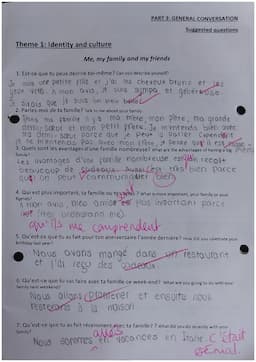 PART 3: GENERAL CONVERSATION
Suggested questions
Theme 1: Identity and culture
Me, my family and my friends
1. Est-ce que tu peux décrire toi-même? Can you describe yourself?
Je suis une petite fille et j'ai les cheveux bruns et les
yeux verts. À mon avis, je suis sympa et généreuse
je dirais que je suis un peu
2. Parles-moi de ta famille. Talk to me about your family.
Dans ma famille il y a ma mère, mon père, ma grande
demi-sœur et mon petit frère. Je m'entends bien avec
ma demi-sœur parce que je peux la parler. Cependant
je ne m'entends pas avec mon frère, je pense qu'il est
3. Quels sont les avantages d'une famille nombreuse? What are the advantages of having a big family?
Les avantages d'une famille nombreuse on reçoit
beaucoup de cadeaux. Aussi bien parce
que on peut communiquer bien
4. Qui est plus important, ta famille ou tes amis? What is more important, your family or your friends?
À mon avis, mes amis sont plus important parce
que
qu'ils me comprendent
5. Qu'est-ce que tu as fait pour ton anniversaire l'année dernière? How did you celebrate your birthday last year?
Nous avons mangé dans un restaurant
et j'ai reçu des cadeaux
6. Qu'est-ce que tu vas faire avec ta famille ce week-end? What are you going to do with your family next weekend?
Nous allons et ensuite nous
resterons à la maison
7. Qu'est-ce que tu as fait récemment avec ta famille? What did you do recently with your family?
allés
Nous sommes en vacances en Italie. C'était
génial.